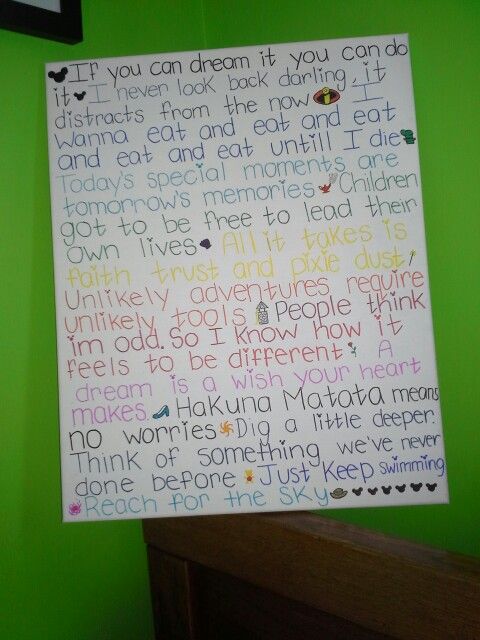 If you can dream it you can do
it I never look back darling, it
distracts from the now I
wanna eat and eat and eat
and eat and eat untill I die
Today's special moments are
tomorrow's memories Children
got to be free to lead their
own lives All it takes is
faith trust and pixie dust
Unlikely adventures require
unlikely tools People think
im odd. So I know how it
feels to be different A
dream is a wish your heart
makes Hakuna Matata means
no worries Dig a little deeper.
Think of something we've never
done before Just Keep swimming
Reach for the sky